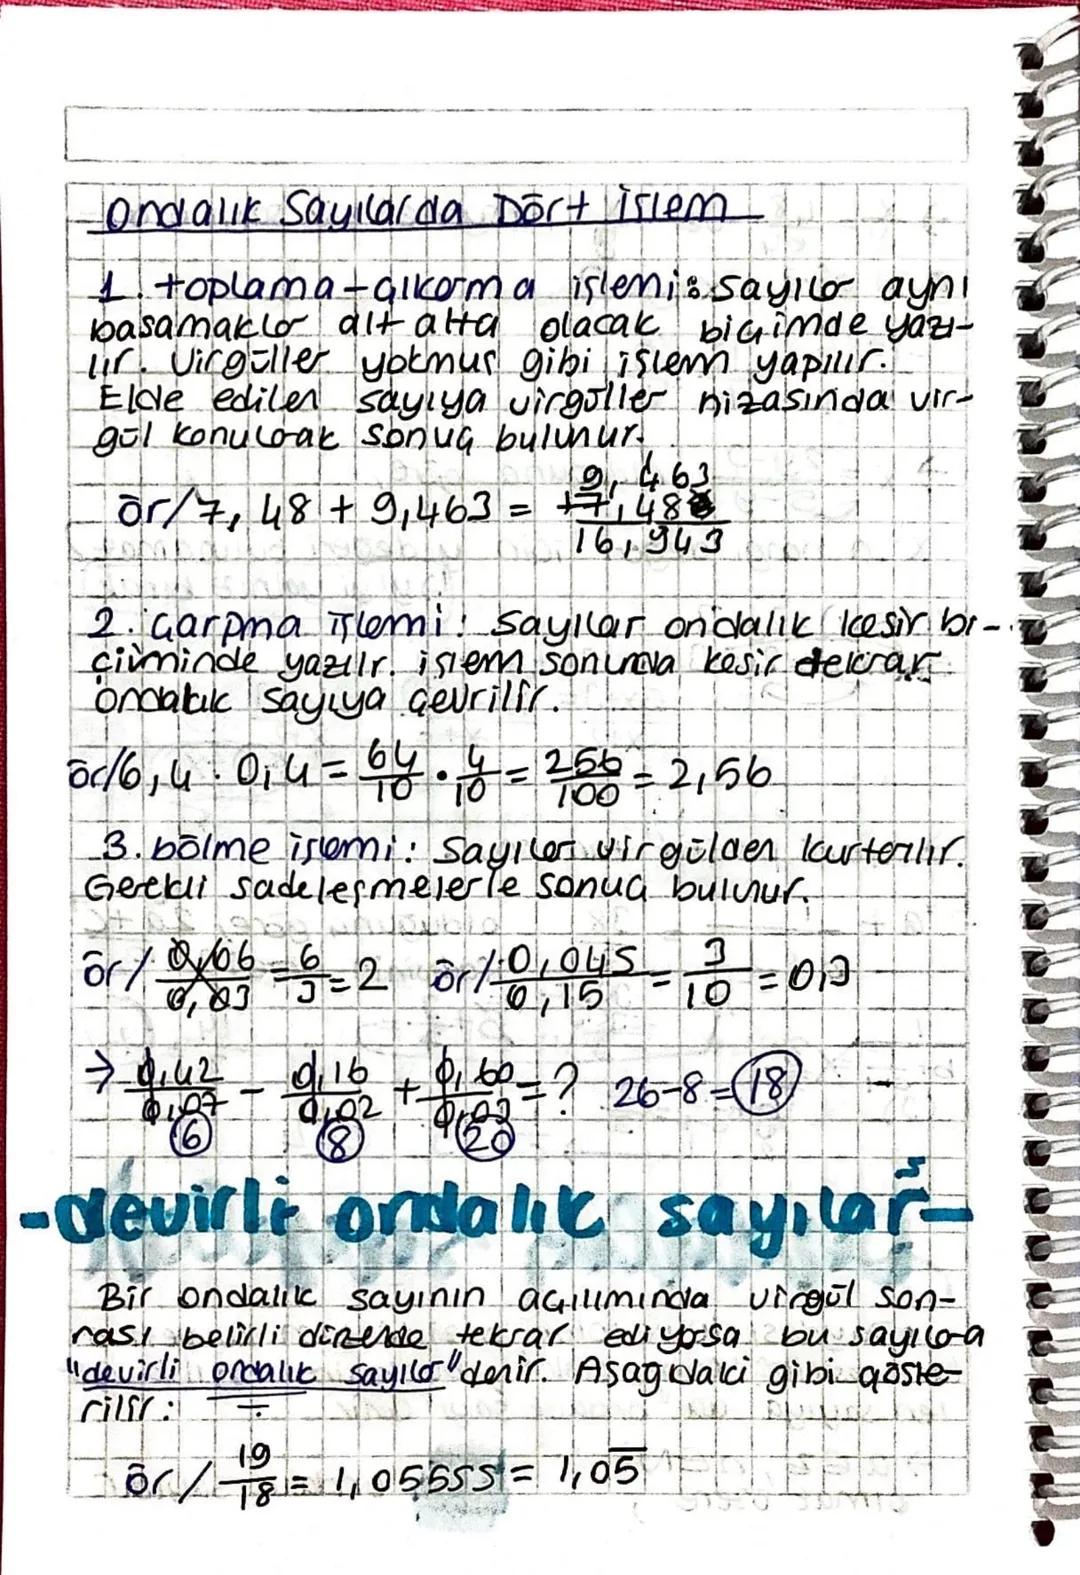 Ondalık Sayılarda Dört İşlem
1. toplama-çıkarma işlemi: sayılar aynı
basamaklar alt alta olacak biçimde yazı-
lır. Virgüller yokmuş gibi işlem yapılır.
Elde edilen sayıya virgüller hizasında vir-
gül konularak sonuç bulunur.
ör/7,48 + 9,463 = 9,463 +7,48 16,943
2. Çarpma İşlemi: Sayılar ondalık kesir bi-
çiiminde yazılır. işlem sonunda kesir tekrar
ondalık sayıya çevrilir.
ör/6,4 . 0,4 = 64/10 . 4/10 = 256/100 = 2,56
3. bölme işlemi: Sayılar virgülden kurtarılır.
Gerekli sadeleşmelerle sonuç bulunur.
ör/ 0,06/0,03 = 6/3 = 2 ör/ 0,045/0,15 = 3/10 = 0,3
→ 0,42/0,07 - 0,16/0,02 + 0,60/0,03 = ? 26-8 = 18
6 8 20
-devirli ondalık sayılar-
Bir ondalık sayının açılımında virgül son-
rası belirli düzende tekrar ediyorsa bu sayılara
"devirli ondalık sayılar" denir. Aşağıdaki gibi göste-
rilir:
ör/ 19/18 = 1,05555 = 1,05̅